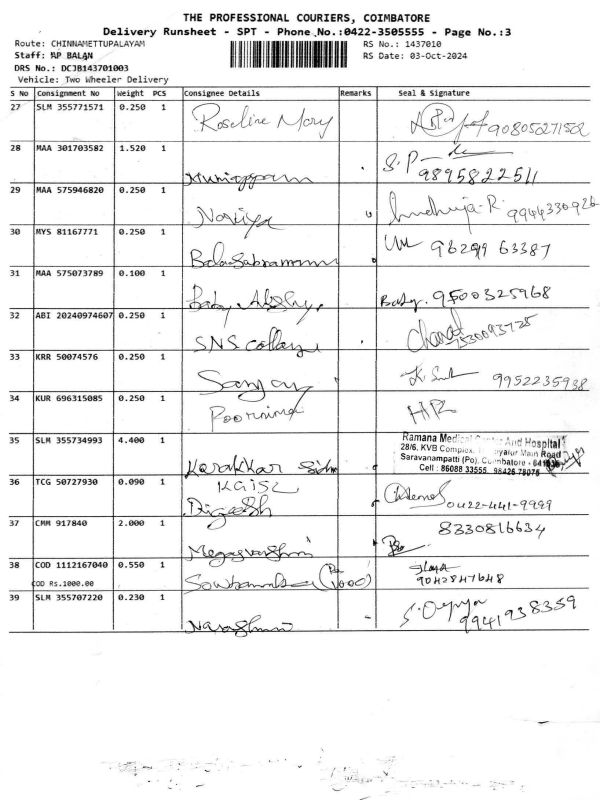 THE PROFESSIONAL COURIERS, COIMBATORE
Delivery Runsheet - SPT - Phone No.:0422-3505555 - Page No.:3
Route: CHINNAMETTUPALAYAM RS No.: 1437010
Staff: AP BALAN RS Date: 03-Oct-2024
DRS No.: DCJB143701003
Vehicle: Two Wheeler Delivery
S No Consignment No Weight PCS Consignee Details Remarks Seal & Signature
27 SLM 355771571 0.250 1 Roseline Mary
28 MAA 301703582 1.520 1 S.P
Muniappan 9895822511
29 MAA 575946820 0.250 1
9944330926
30 MYS 81167771 0.250 1 96299 63387
Balasubramani
31 MAA 575073789 0.100 1 Baby 9500325968
32 ABI 20240974607 0.250 1
SNS college
33 KRR 50074576 0.250 1
Sanjay 9952235938
34 KUR 696315085 0.250 1 Poornima
35 SLM 355734993 4.400 1 Ramana Medical Center And Hospital
28/6, KVB Complex, Main Road
Saravanampatti (Po), Coimbatore
Cell : 86088 33555, 98426 78076
36 TCG 50727930 0.090 1 KGISL
0422-441-9999
37 CMM 917840 2.000 1 8330816634
38 COD 1112167040 0.550 1
COD Rs.1000.00 9042847648
39 SLM 355707220 0.230 1
9941938359